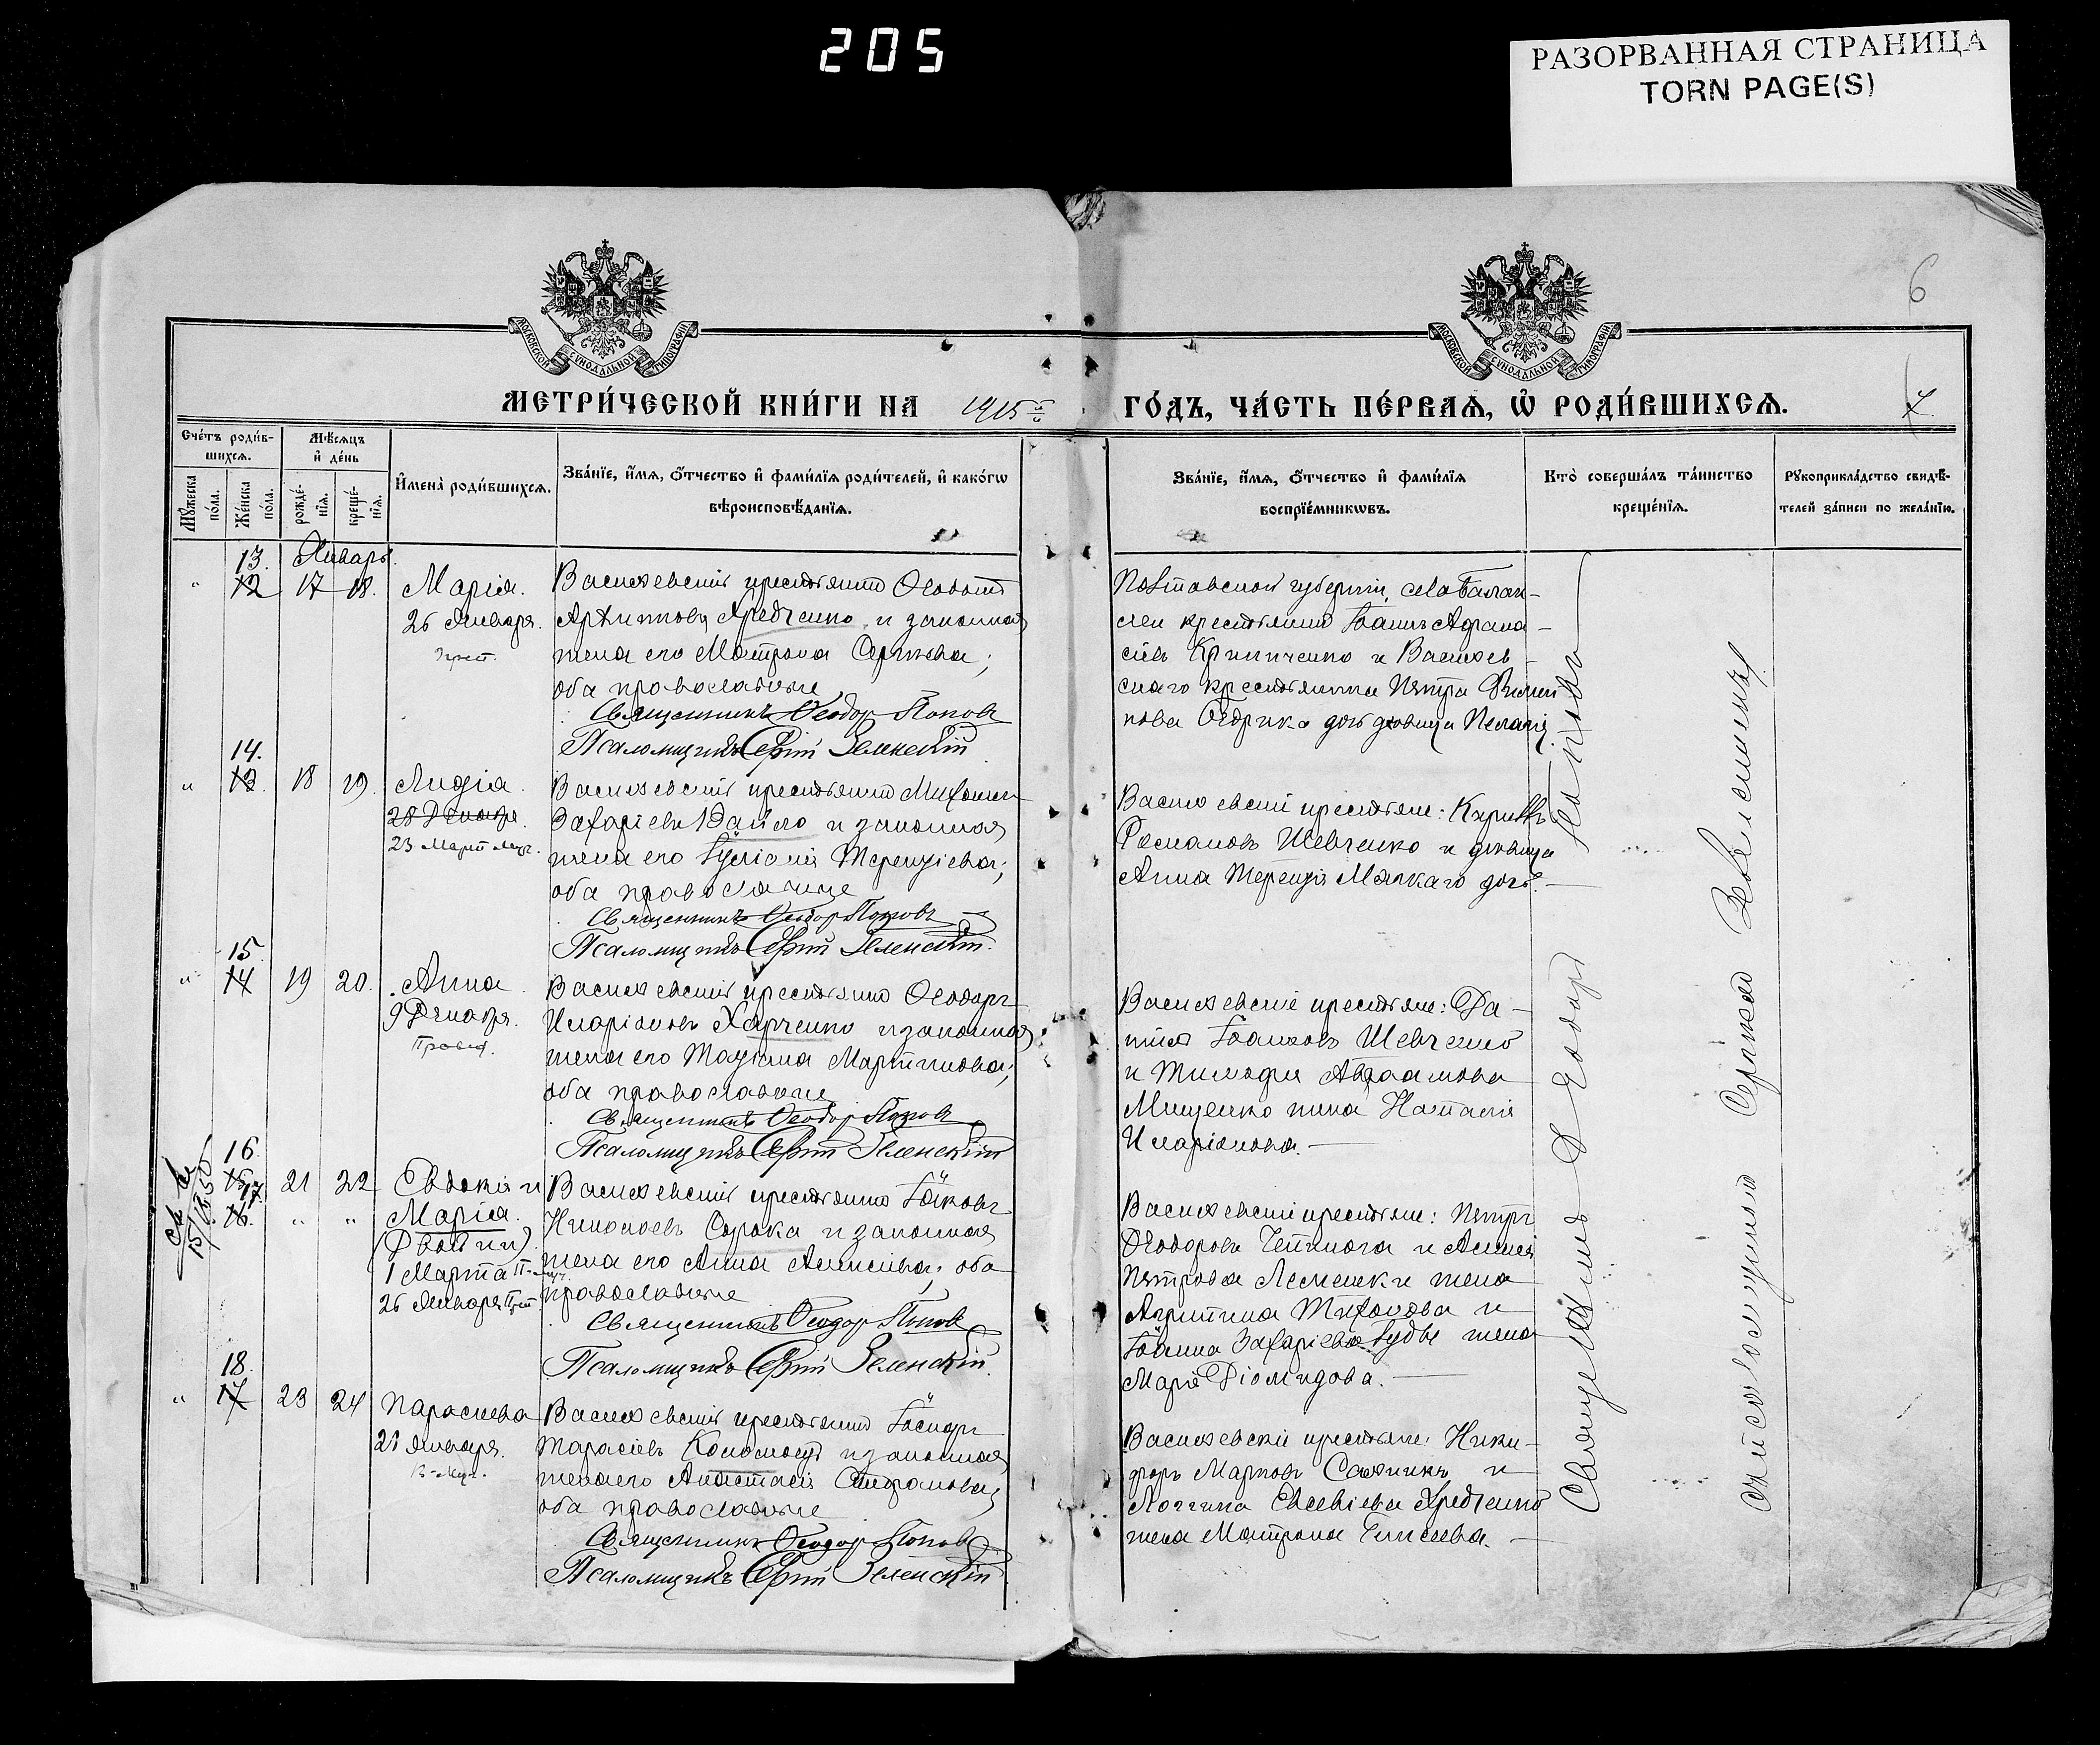 205
РАЗОРВАННАЯ СТРАНИЦА
TORN PAGE(S)
6
МОСКОВСКОЙ СѴНОДАЛЬНОЙ ТИПОГРАФІИ
МОСКОВСКОЙ СѴНОДАЛЬНОЙ ТИПОГРАФІИ
МЕТРИ́ЧЕСКОЙ КНИ́ГИ НА 1915 ГО́ДЪ, ЧА́СТЬ ПЕ́РВАѦ, Ѽ РОДИ́ВШИХСѦ.
7.
Сче́тъ роди́в-
шихсѧ.
Мꙋ́жеска по́ла.
Же́нска по́ла.
Мѣ́сѧцъ
и҆ де́нь
рожде́-
нїѧ.
креще́-
нїѧ.
И҆мена̀ роди́вшихсѧ.
Зва́нїе, и҆́мѧ, ѻ҆́тчество и҆ фами́лїѧ роди́телей, и҆ како́гѡ
вѣроисповѣ́данїѧ.
Зва́нїе, и҆́мѧ, ѻ҆́тчество и҆ фами́лїѧ
воспрїе́мникѡвъ.
Кто̀ соверша́лъ та́инство
креще́нїѧ.
Рꙋкоприкла́дство свидѣ́-
телей за́писи по жела́нїю.
13. Январь.
" 12 17 18. Марія.
26 Января.
Васильевскій крестьянинъ Ѳеодотъ
Архипповъ Хредченко и законная
жена его Матрона Сергіева;
оба православные
Священникъ Ѳеодоръ Поповъ
Псаломщикъ Сергій Зеленскій
Полтавской губерніи, села Балак-
леи крестьянинъ Іоаннъ Аѳана-
сіевъ Крипиченко и Васильев-
скаго крестьянина Петра Филип
пова дочь девица Пелагія
14.
" 13. 18 19. Лидія.
23 Март. муч.
Васильевскій крестьянинъ Михаилъ
Захаріевъ и законная
жена его Іуліанія Терентіева;
оба православные
Священникъ Ѳеодоръ Поповъ
Псаломщикъ Сергій Зеленскій.
Васильевскіе крестьяне: Кириллъ
Романовъ Шевченко и девица
Анна Терентія Мялкаго дочь.
15.
" 14 19 20. Анна
9 Декабря.
Васильевскій крестьянинъ Ѳеодоръ
Иларіоновъ Харченко и законная
жена его Татіана Мартинова;
оба православные
Священникъ Ѳеодоръ Поповъ
Псаломщикъ Сергій Зеленскій
Васильевскіе крестьяне: Да-
ніилъ Іоанновъ Шевченко
и Тимоѳея Авраамова
Мищенко жена Наталія
Иларіонова.
16.
15. 21 22 Евдокія и
17.
16. " " Марія
(Двойни)
1 Марта
26 Января
Васильевскій крестьянинъ Іаковъ
Сорока и законная
жена его Анна Алексіева; оба
православные
Священникъ Ѳеодоръ Поповъ
Псаломщикъ Сергій Зеленскій.
Васильевскіе крестьяне: Петръ
Ѳеодоровъ и Алексія
Петрова жена
Агрипина Тихонова и
Іоанна Захаріева Гудзь жена
Марія Діомидова.
18.
" 17 23 24 Параскева
Января.
В-муч.
Васильевскій крестьянинъ Іосифъ
Тарасіевъ и законная
жена его Анастасія Стефанова;
оба православные
Священникъ Ѳеодоръ Поповъ
Псаломщикъ Сергій Зеленскій
Васильевскіе крестьяне: Ники-
форъ Марковъ и
Логгина Евсевіева Хредченко
жена Матрона Елисеева.
Священникъ Ѳеодоръ Поповъ
съ псаломщикомъ Сергіемъ Зеленскимъ